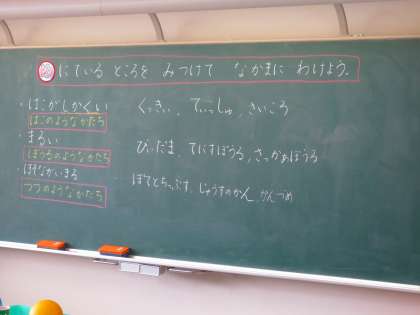 にている ところを みつけて なかまに わけよう。
・はこがしかくい
はこのようなかたち
くっきい、てぃっしゅ、さいころ
・まるい
ぼうるのようなかたち
びいだま、てにすぼうる、さっかあぼうる
・ほそながいまる
つつのようなかたち
ぽてとちっぷす、じゅうすのかん、かんづめ